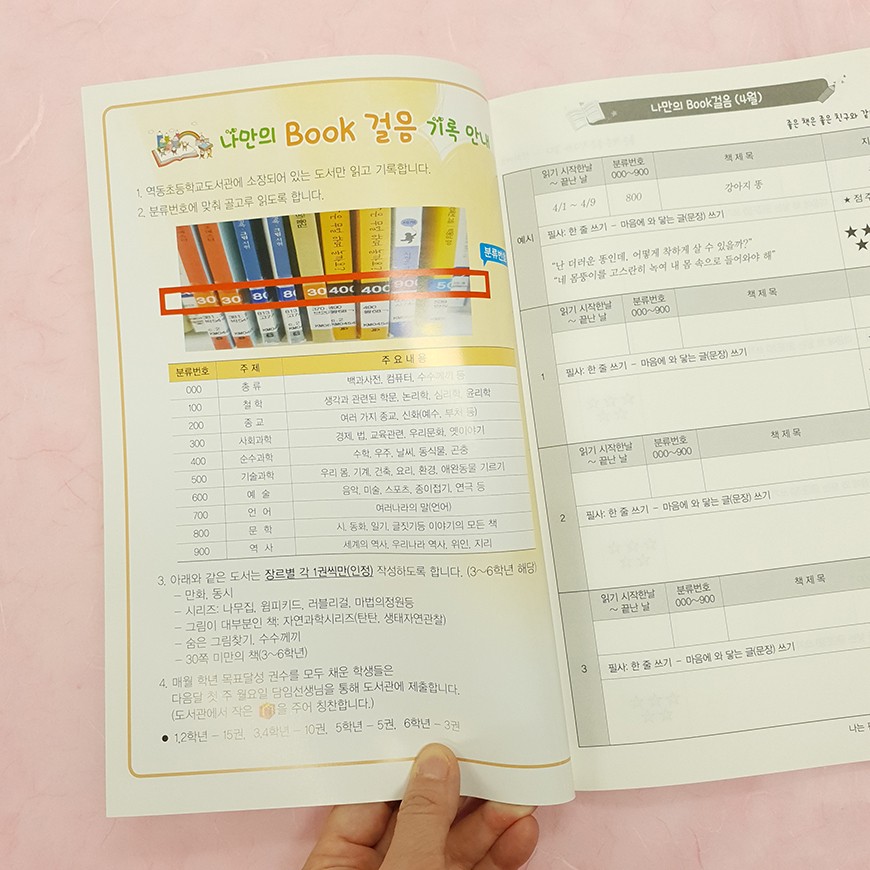 나만의 Book 걸음 기록 안내
1. 역동초등학교도서관에 소장되어 있는 도서만 읽고 기록합니다.
2. 분류번호에 맞춰 골고루 읽도록 합니다.
분류번호
분류번호 주 제 주 요 내 용
000 총 류 백과사전, 컴퓨터, 수수께끼 등
100 철 학 생각과 관련된 학문, 논리학, 심리학, 윤리학
200 종 교 여러 가지 종교, 신화(예수, 부처 등)
300 사회과학 경제, 법, 교육관련, 우리문화, 옛이야기
400 순수과학 수학, 우주, 날씨, 동식물, 곤충
500 기술과학 우리 몸, 기계, 건축, 요리, 환경, 애완동물 기르기
600 예 술 음악, 미술, 스포츠, 종이접기, 연극 등
700 언 어 여러나라의 말(언어)
800 문 학 시, 동화, 일기, 글짓기등 이야기의 모든 책
900 역 사 세계의 역사, 우리나라 역사, 위인, 지리
3. 아래와 같은 도서는 장르별 각 1권씩만(인정) 작성하도록 합니다. (3~6학년 해당)
- 만화, 동시
- 시리즈: 나무집, 윔피키드, 러블리걸, 마법의정원등
- 그림이 대부분인 책: 자연과학시리즈(탄탄, 생태자연관찰)
- 숨은 그림찾기, 수수께끼
- 30쪽 미만의 책(3~6학년)
4. 매월 학년 목표달성 권수를 모두 채운 학생들은
다음달 첫 주 월요일 담임선생님을 통해 도서관에 제출합니다.
(도서관에서 작은 을 주어 칭찬합니다.)
● 1,2학년 - 15권, 3,4학년 - 10권, 5학년 - 5권, 6학년 - 3권
나만의 Book걸음 (4월)
좋은 책은 좋은 친구와 같
예시
읽기 시작한날 ~ 끝난 날 분류번호 000~900 책 제 목
4/1 ~ 4/9 800 강아지 똥
★ 점 주
필사: 한 줄 쓰기 - 마음에 와 닿는 글(문장) 쓰기
"난 더러운 똥인데, 어떻게 착하게 살 수 있을까?"
"네 몸뚱이를 고스란히 녹여 내 몸 속으로 들어와야 해"
★★
★
1
읽기 시작한날 ~ 끝난 날 분류번호 000~900 책 제 목
필사: 한 줄 쓰기 - 마음에 와 닿는 글(문장) 쓰기
2
읽기 시작한날 ~ 끝난 날 분류번호 000~900 책 제 목
필사: 한 줄 쓰기 - 마음에 와 닿는 글(문장) 쓰기
3
읽기 시작한날 ~ 끝난 날 분류번호 000~900 책 제 목
필사: 한 줄 쓰기 - 마음에 와 닿는 글(문장) 쓰기
나는